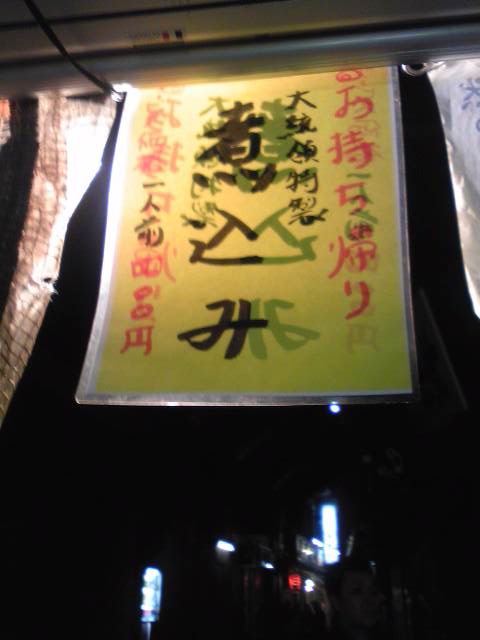 お持ち帰り
大統領特製
煮込み
一人前
円